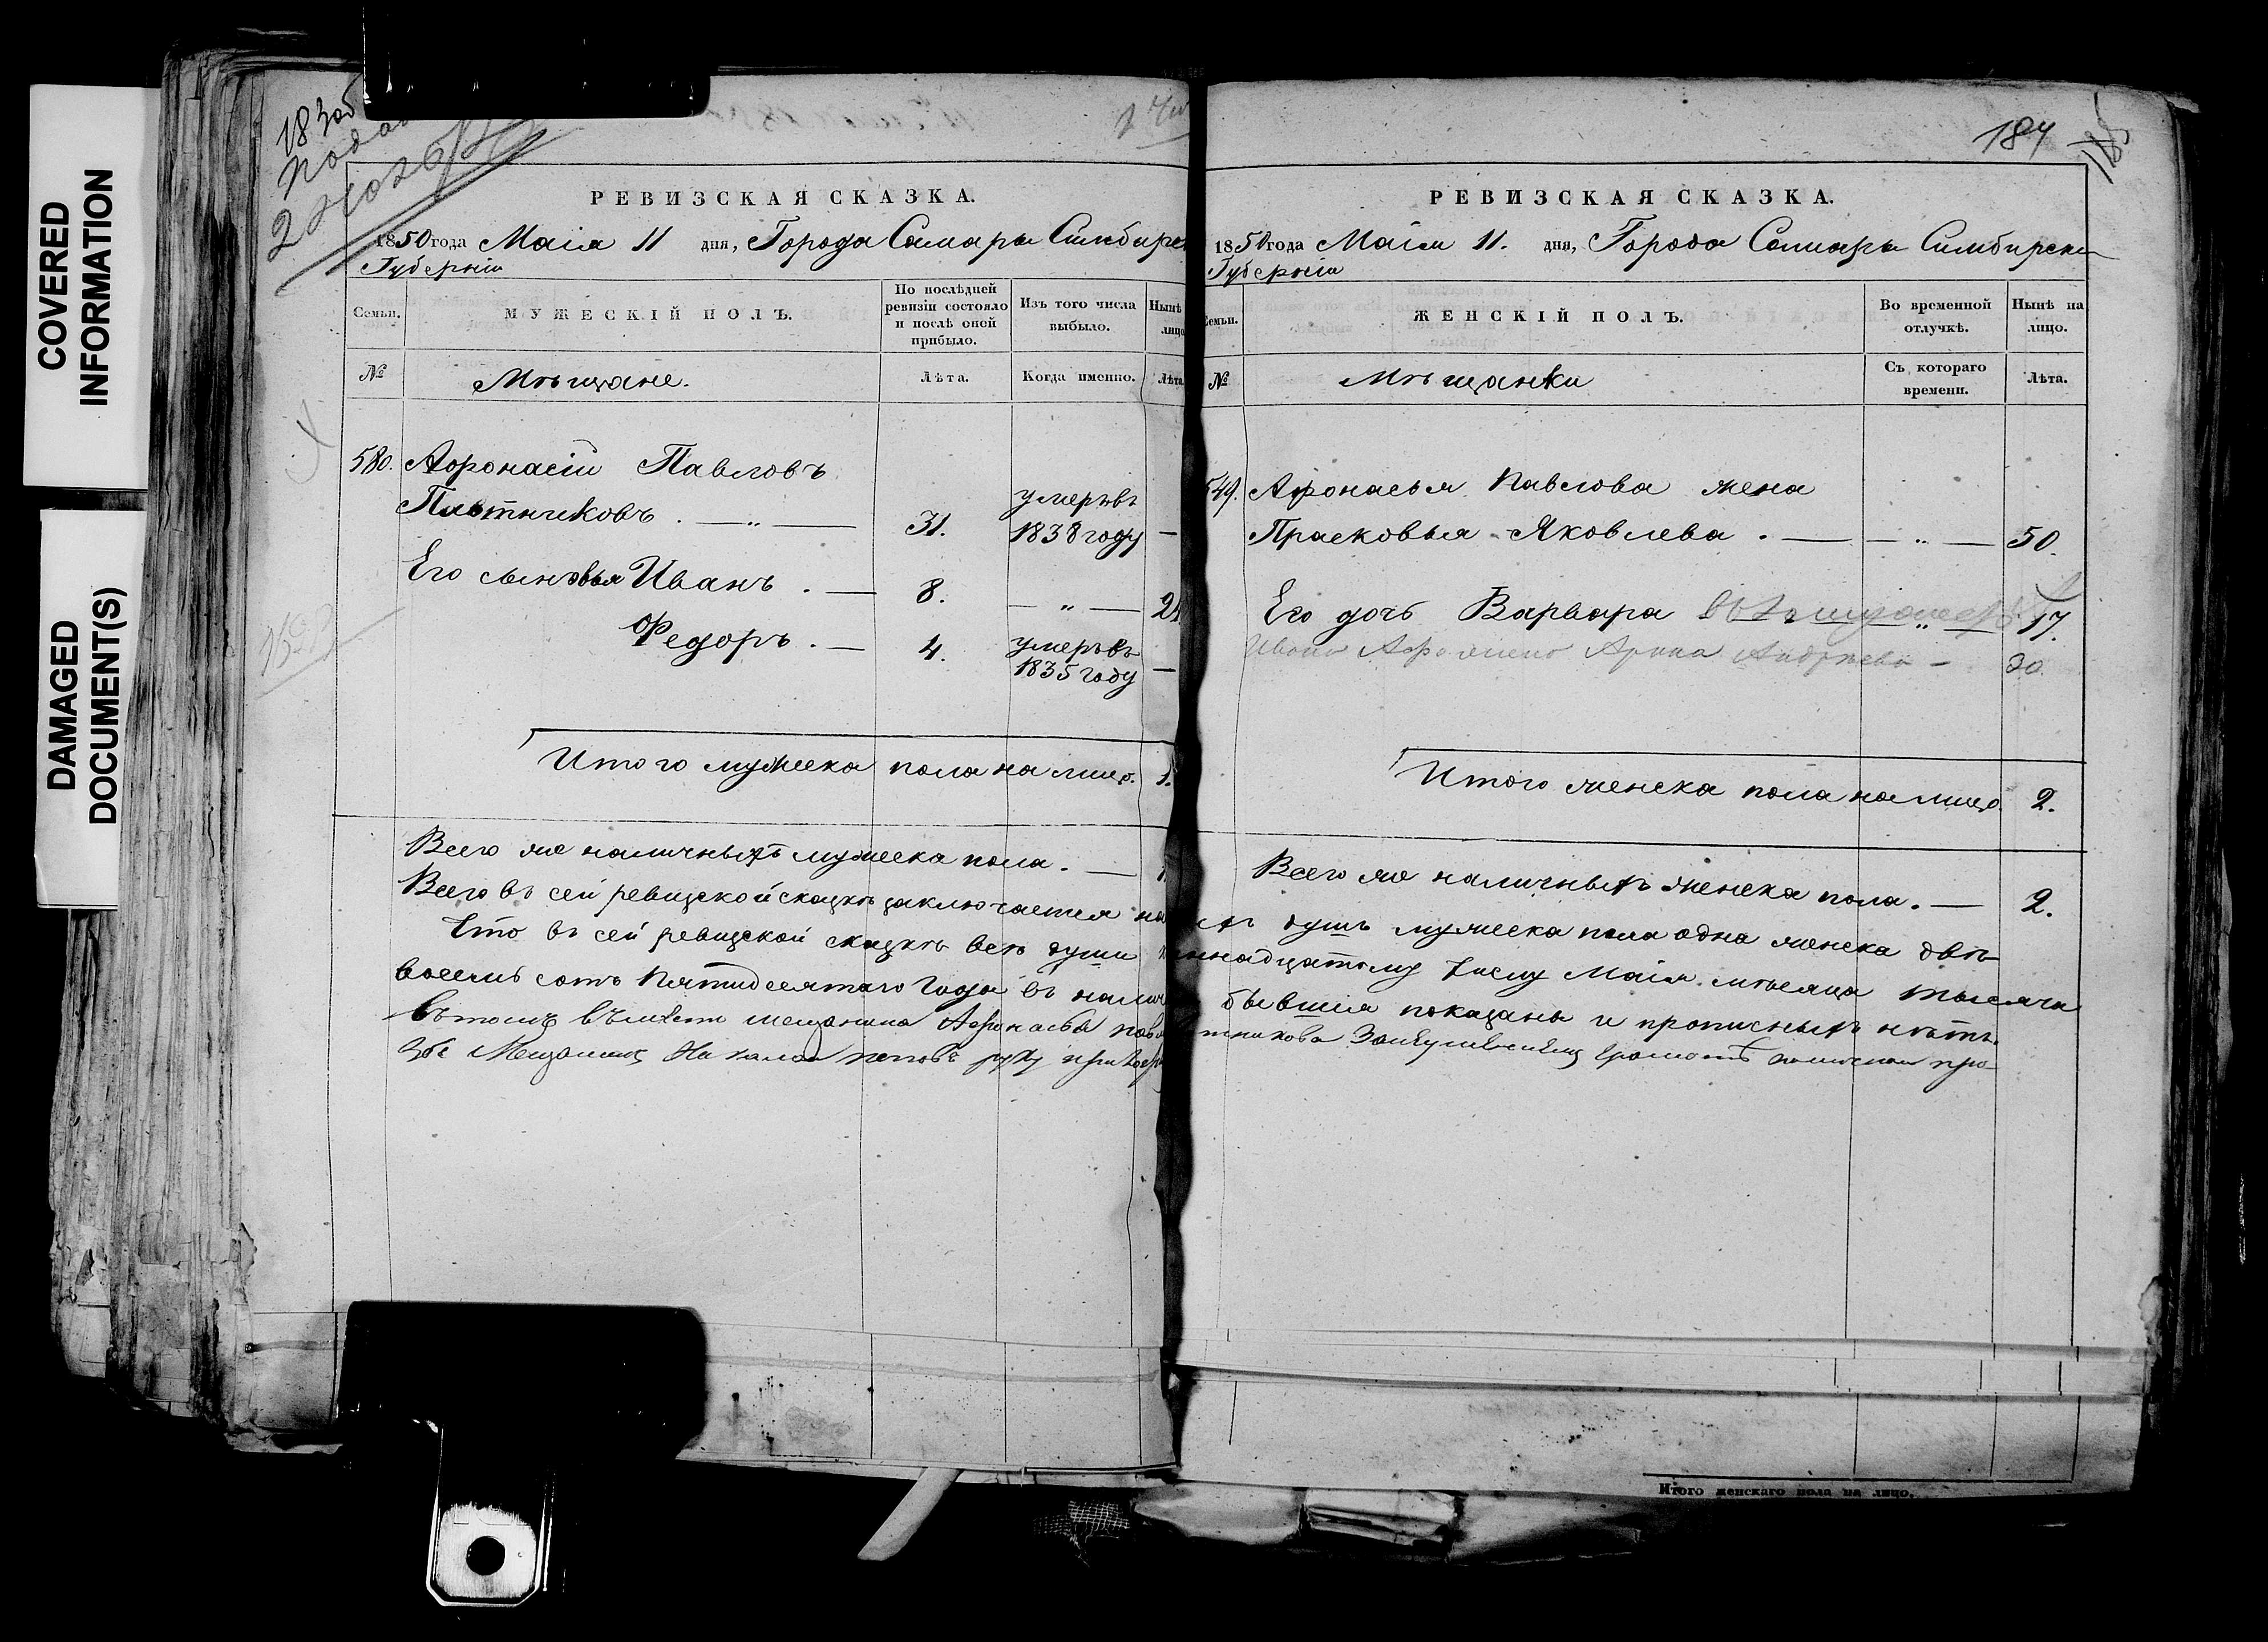 COVERED
INFORMATION
DAMAGED
DOCUMENT(S)
РЕВИЗСКАЯ СКАЗКА.
1850 года Маія 11 дня, Города Самары Симбирск
Губерніи
Семьи. МУЖЕСКІЙ ПОЛЪ. По послѣдней ревизіи состояло и послѣ оной прибыло. Изъ того числа выбыло. Нынѣ лицо
№ Мѣщане. Лѣта. Когда именно. Лѣта
580. Афонасій Павловъ
Плотниковъ . — „ — 31. умеръ въ 1838 году —
Его сыновья Иванъ . — 8. — „ — 24
Федоръ . — 4. умеръ въ 1835 году —
Итого мужеска пола на лицо. 1.
Всего же наличныхъ мужеска пола. — 1.
184
РЕВИЗСКАЯ СКАЗКА.
1850 года Маія 11. дня, Города Самары Симбирско
Губерніи
Семьи. ЖЕНСКІЙ ПОЛЪ. Во временной отлучкѣ. Нынѣ на лицо.
№ Мѣщанки Съ котораго времени. Лѣта.
549. Афонасья Павлова жена
Прасковья Яковлева . — — „ — 50.
Его дочь Варвара „ — 17.
Ивана Арина Андреева — 30
Итого женска пола на лицо 2.
Всего же наличныхъ женска пола. — 2.
Всего въ сей ревизской сказкѣ заключается на ихъ душъ мужеска пола одна женска двѣ
Что въ сей ревизской сказкѣ всѣ души надцатому числу Маія мѣсяца тысяча
восемь сотъ пятидесятаго года въ налич бывшія показаны и прописныхъ нѣтъ.
въ томъ вместо мещанина Афонасья Пав тникова
Итого женскаго пола на лицо.